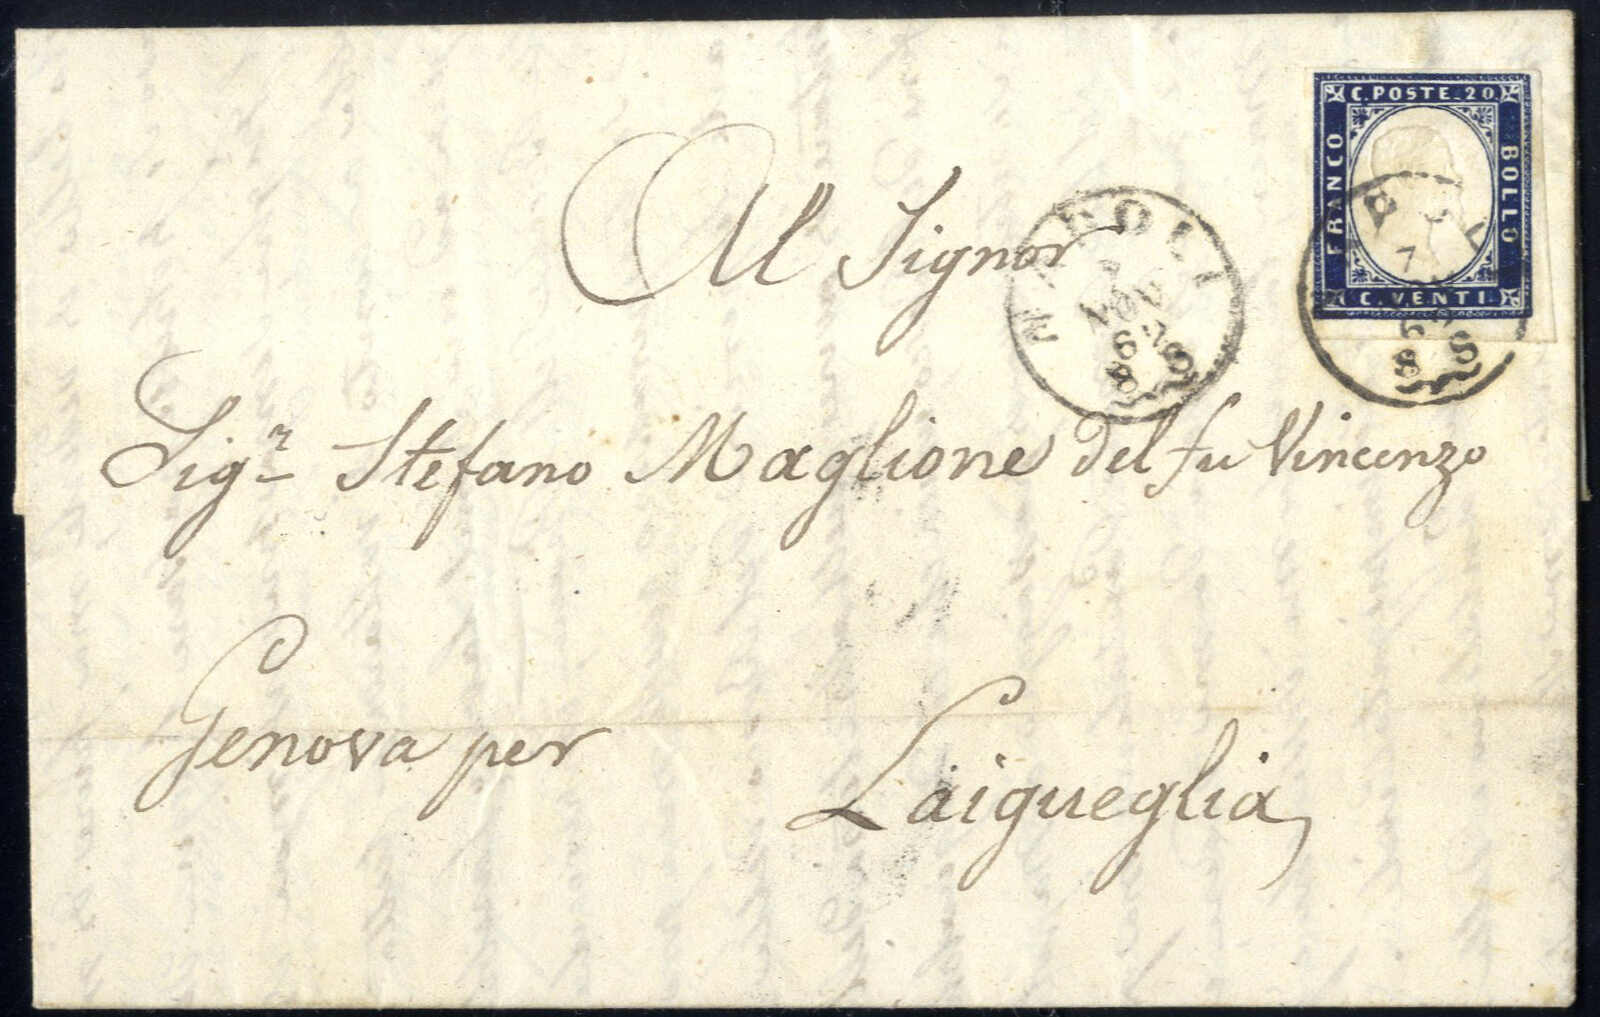 C. POSTE. 20.
FRANCO
BOLLO
C. VENTI.
NAPOLI
7
NOV
62
8 S
7
Al Signor
Sigr Stefano Maglione del fu Vincenzo
Genova per
Laigueglia